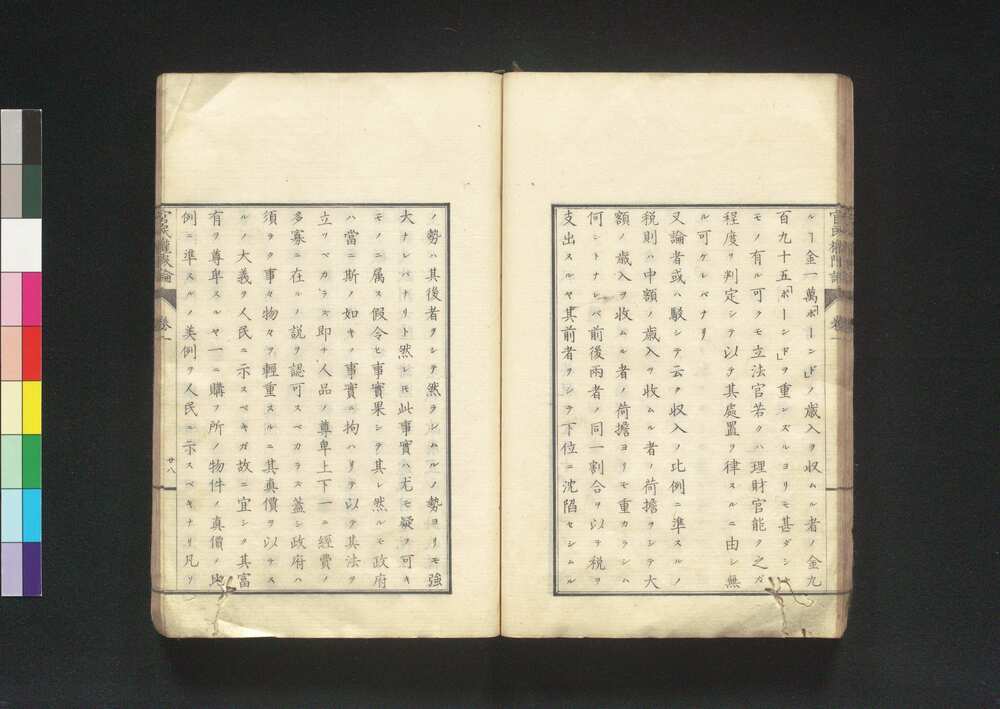 ルー金一萬「ポーンド」ノ歳入ヲ収ムル者ノ金九
百九十五「ポーンド」ヲ重ンズルヨリモ甚ダシキ
モノ有ル可クモ立法官若クハ理財官能ク之ガ
程度ヲ判定シテ以テ其處置ヲ律スルニ由シ無
ル可ケレバナリ
又論者或ハ駁シテ云ク収入ノ比例ニ準スルノ
税則ハ中額ノ歳入ヲ收ムル者ノ荷擔ヲシテ大
額ノ歳入ヲ收ムル者ノ荷擔ヨリモ重カラシム
何ントナレバ前後兩者ノ同一割合ヲ以テ税ヲ
支出スルヤ其前者ヲシテ下位ニ沈陷セシムル
ノ勢ハ其後者ヲシテ然ラシムルノ勢ヨリモ強
大ナレバナリト然レモ此事實ハ尤モ疑フ可キ
モノニ属ス假令ヒ事實果シテ其レ然ルモ政府
ハ當ニ斯ノ如キノ事實ニ拘ハリテ以テ其法ヲ
立ツベカラズ即チ人品ノ尊卑上下一ニ經費ノ
多寡ニ在ルノ説ヲ認可スベカラス蓋シ政府ハ
須ヲク事々物々ヲ輕重スルニ其真價ヲ以テス
ルノ大義ヲ人民ニ示スベキガ故ニ宜シク其富
有ヲ尊卑スルヤ一ニ購フ所ノ物件ノ真價ノ比
例ニ準スルノ美例ヲ人民ニ示スベキナリ凡ソ
卷一
廿八